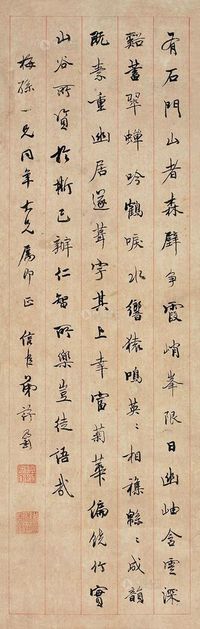 有石門山者森壁爭霞峭峯限日幽岫含雲深
谿蓄翠蟬吟鶴唳水響猿鳴英〻相雜緜〻成韻
既素重幽居遂葺宇其上幸富菊華偏饒竹實
山谷所資於斯已辦仁智所樂豈徒語哉
梅孫一兄同年大人屬即正 弟